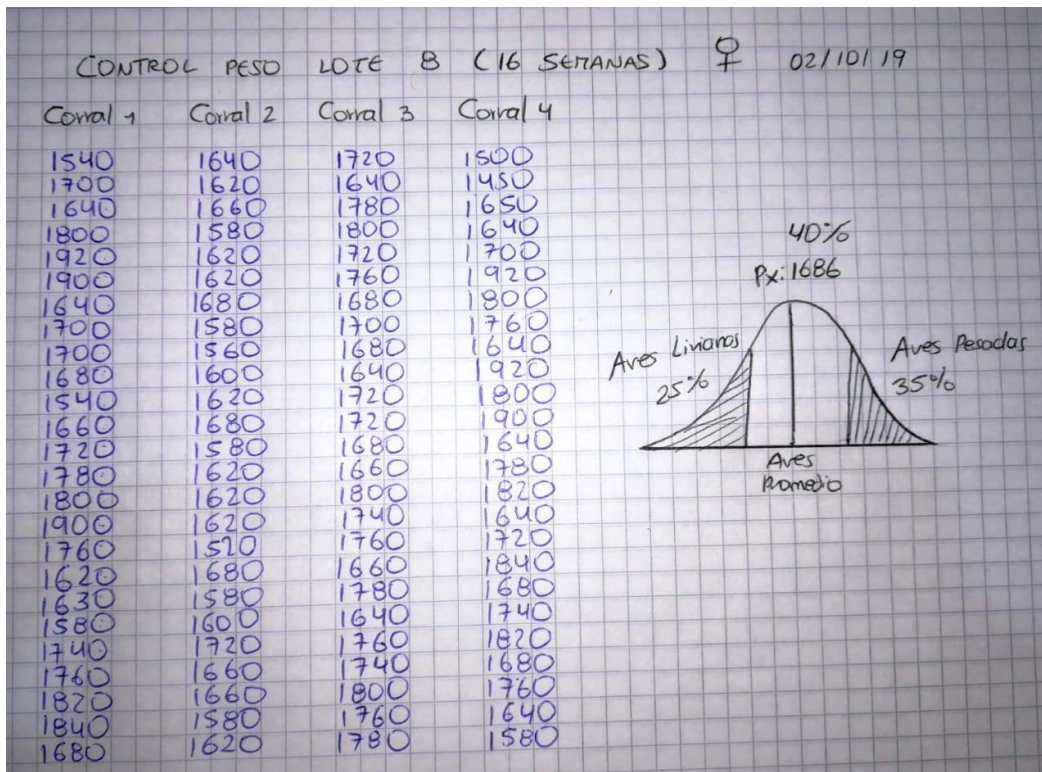 CONTROL PESO LOTE 8 (16 SEMANAS) ♀ 02/10/19
Corral 1 Corral 2 Corral 3 Corral 4
1540 1640 1720 1500
1700 1620 1640 1450
1640 1660 1780 1650
1800 1580 1800 1640
1920 1620 1720 1700
1900 1620 1760 1920
1640 1680 1680 1800
1700 1580 1700 1760
1700 1560 1680 1640
1680 1600 1640 1920
1540 1620 1720 1800
1660 1680 1720 1900
1720 1580 1680 1640
1780 1620 1660 1780
1800 1620 1800 1820
1900 1620 1740 1640
1760 1520 1760 1720
1620 1680 1660 1840
1630 1580 1780 1680
1580 1600 1640 1740
1740 1720 1760 1820
1760 1660 1740 1680
1820 1660 1800 1760
1840 1580 1760 1640
1680 1620 1780 1580
40%
Px: 1686
Aves Livianas
25%
Aves Pesadas
35%
Aves
Promedio